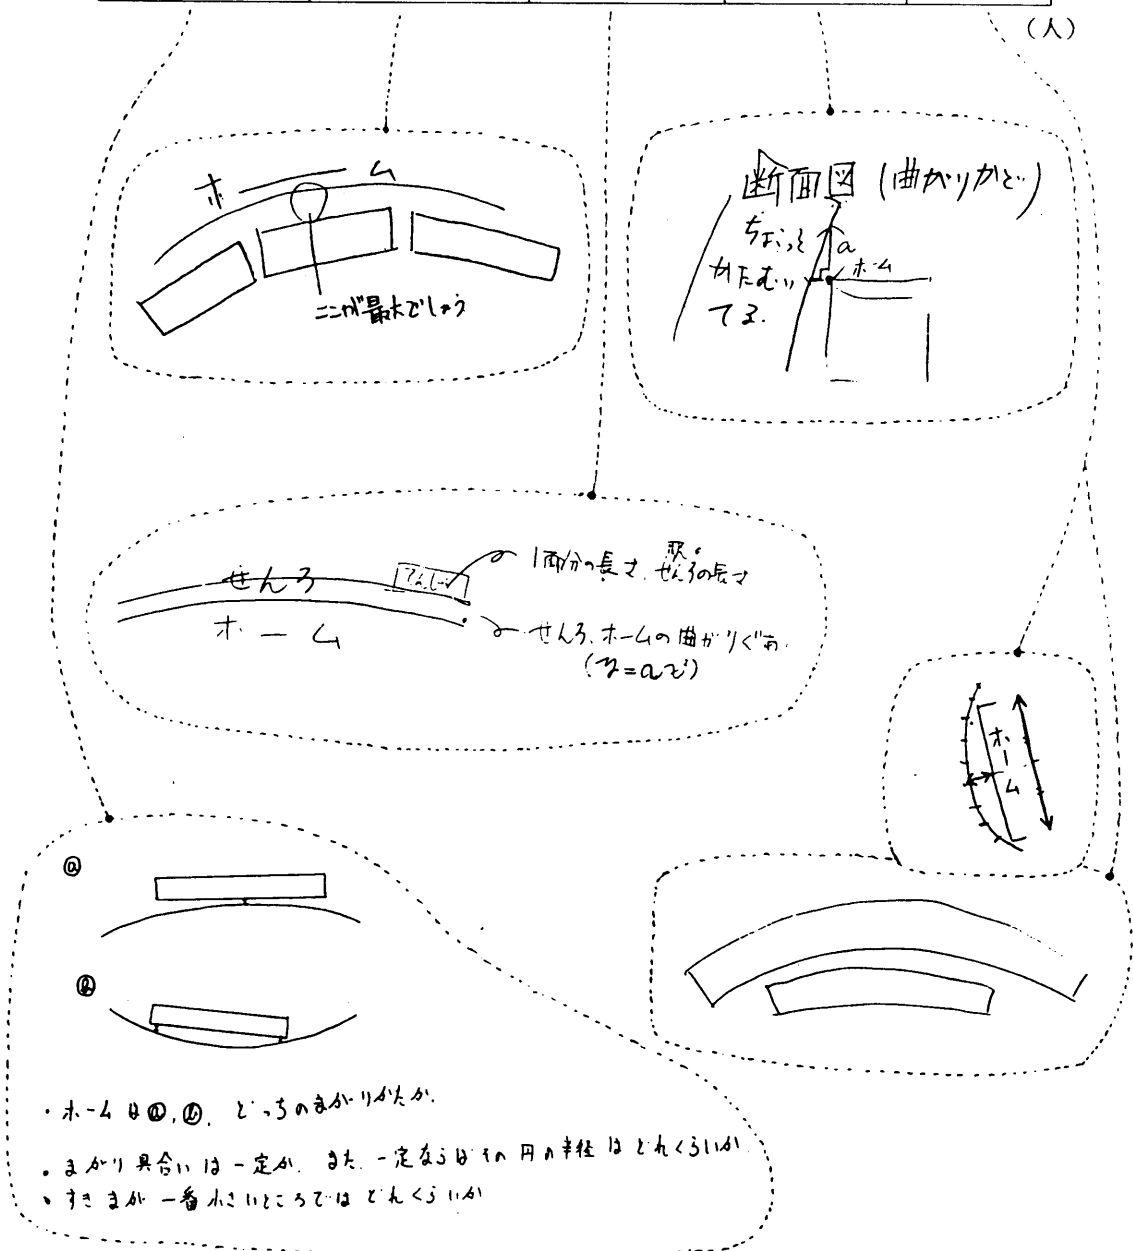 (人)
ホーム
ここが最大でしょう
断面図(曲がりかど)
ちょっと
かたむい
てる.
a
ホーム
せんろ
ホーム
でんしゃ
1両分の長さ、駅。せんろの長さ
せんろ、ホームの曲がりぐあい
ホーム
ⓐ
ⓑ
・ホームはⓐ,ⓑ, どっちのまがりかたか.
・まがり具合いは一定か. また, 一定ならばその円の半径はどれくらいか
・すきまが一番小さいところではどれくらいか